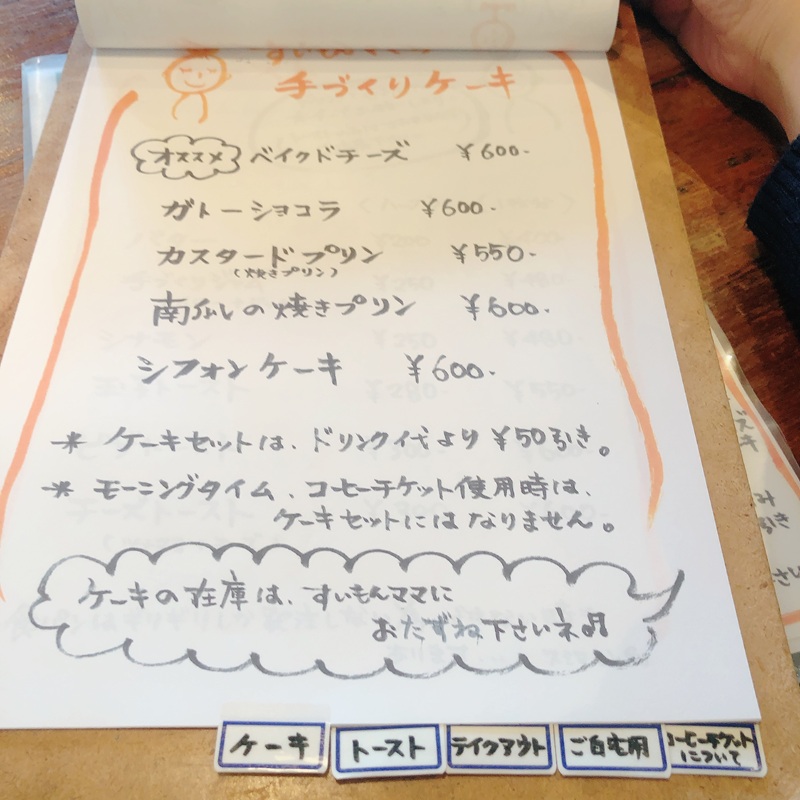 すいもんママの
手づくりケーキ
オススメ ベイクドチーズ ¥600-
ガトーショコラ ¥600-
カスタードプリン ¥550-
(焼きプリン)
南瓜の焼きプリン ¥600-
シフォンケーキ ¥600-
* ケーキセットは、ドリンク代より¥50引き。
* モーニングタイム、コーヒーチケット使用時は、
ケーキセットにはなりません。
ケーキの在庫は、すいもんママに
おたずね下さいネ♫
ケーキ
トースト
テイクアウト
ご自宅用
コーヒーチケット
について